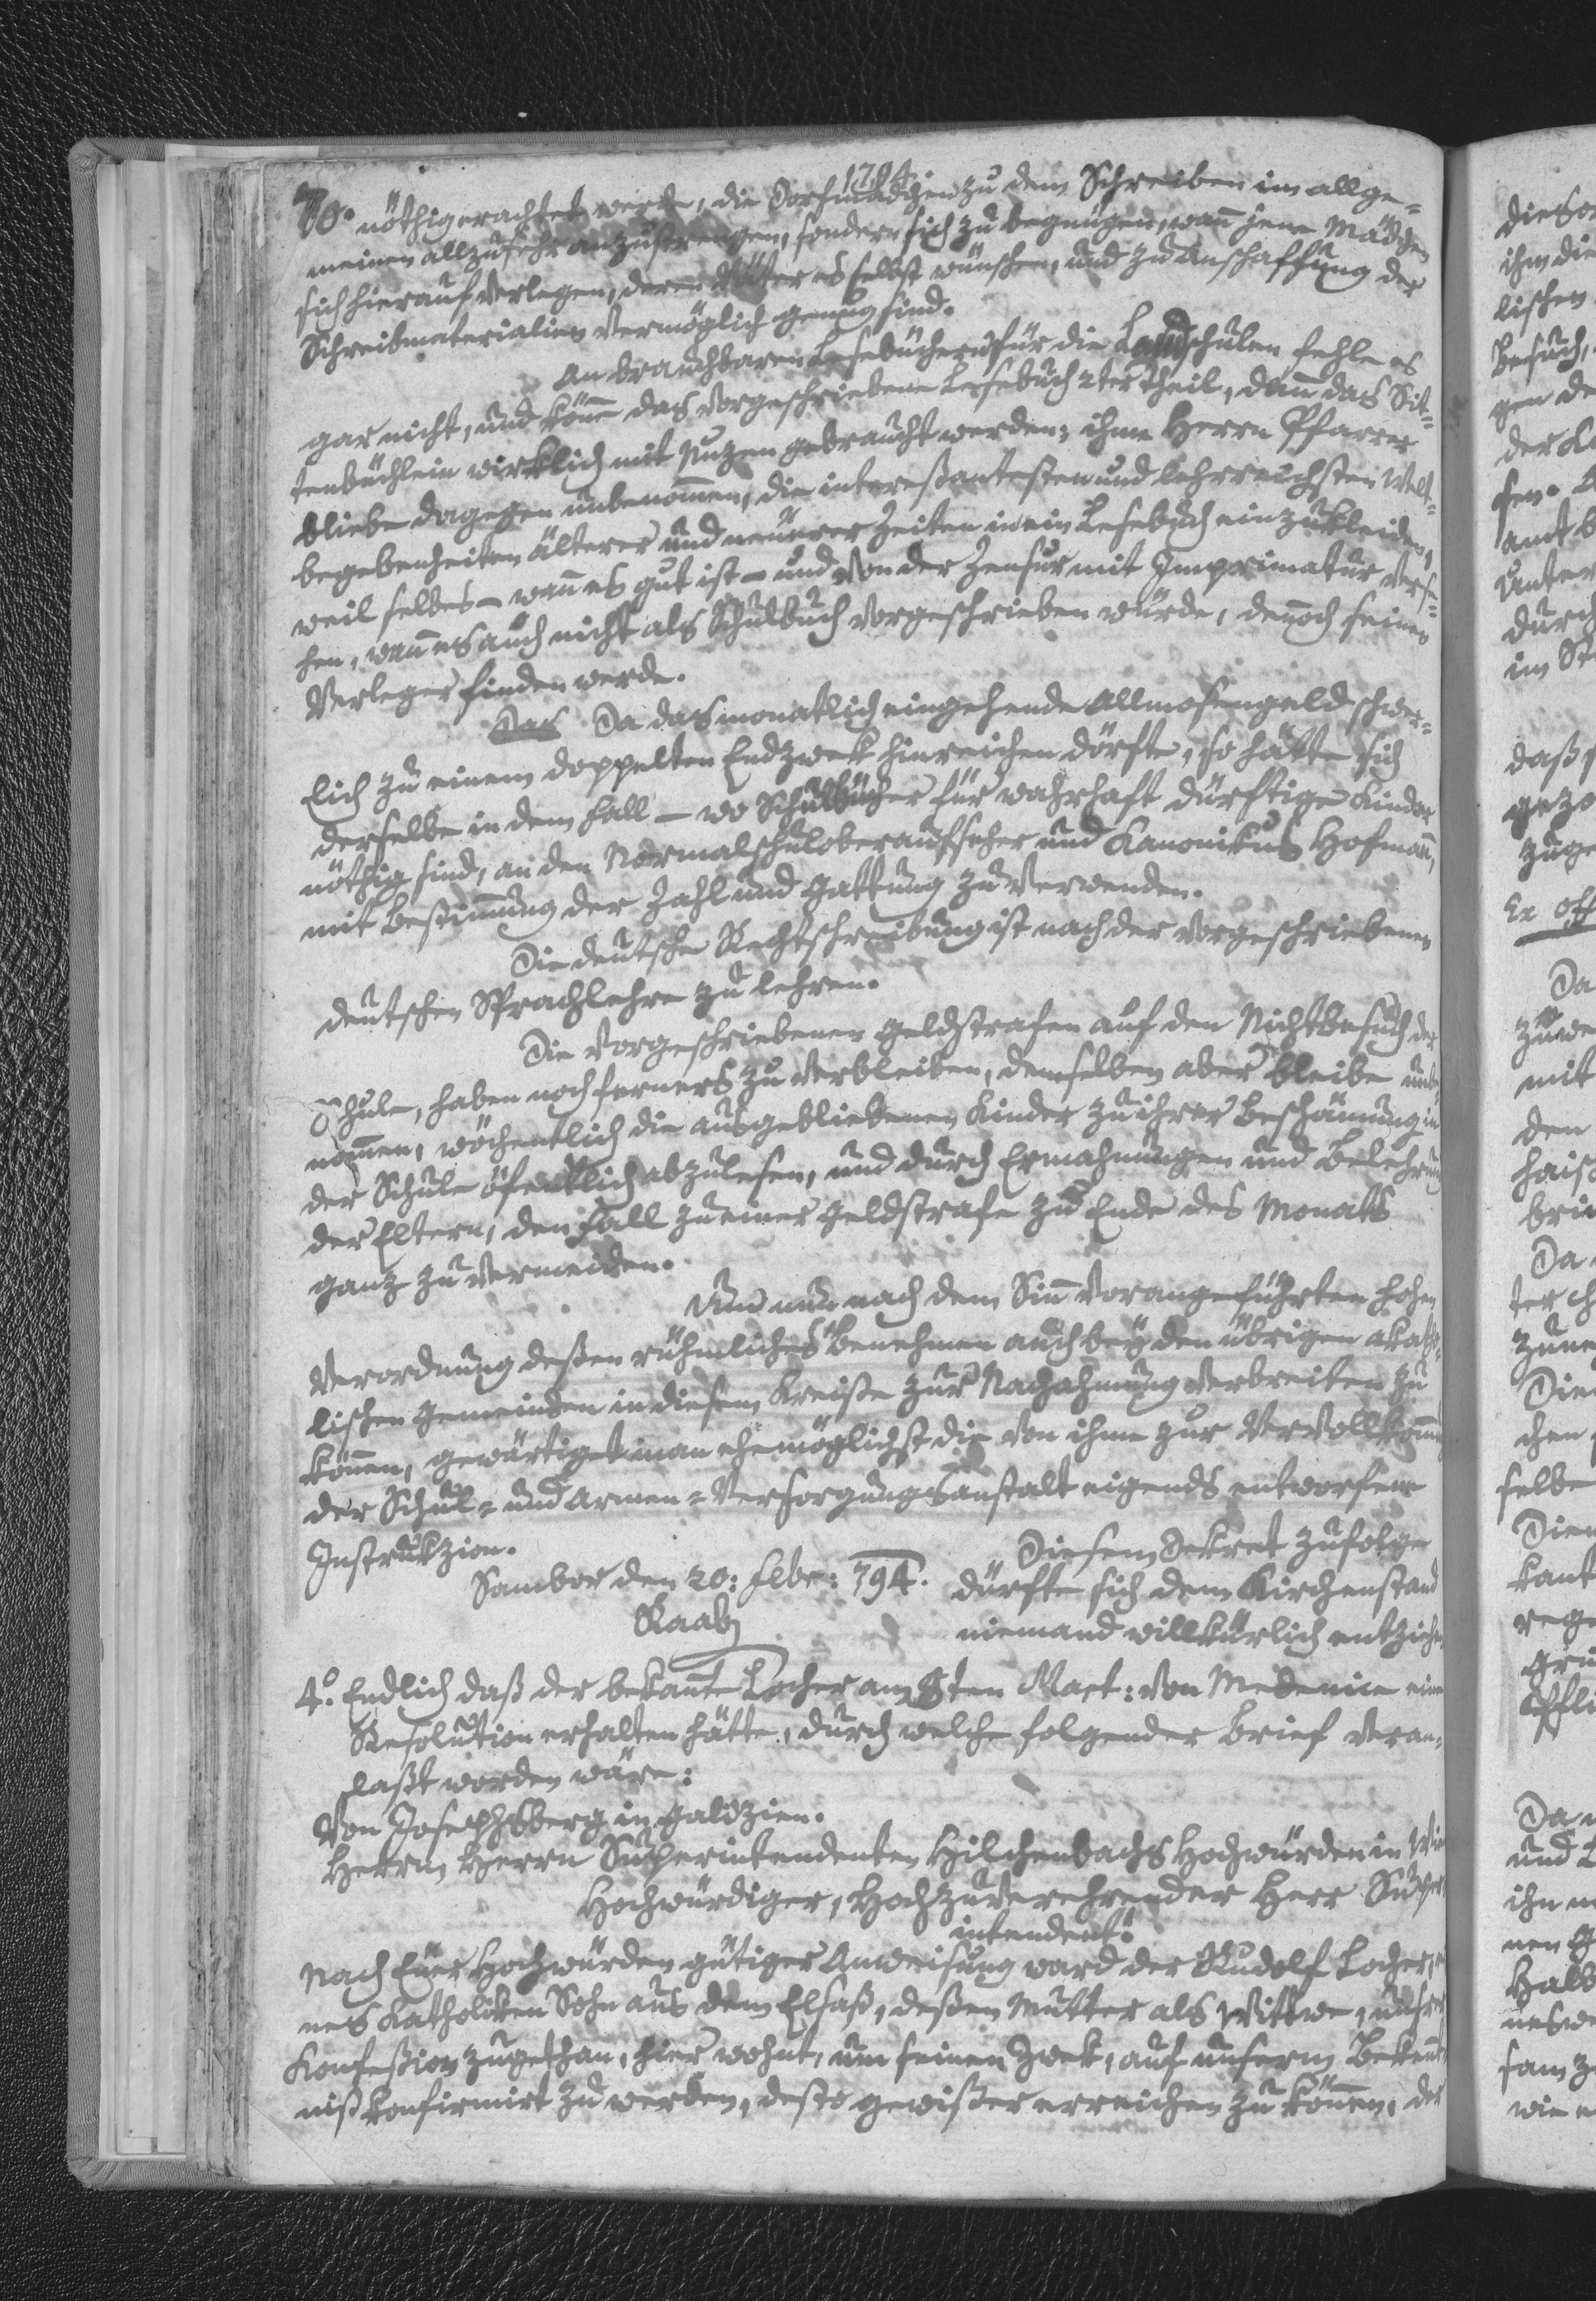 1794.
70. nöthig erachtet werde, die Dorfmädgen zu dem Schreiben im allge=
meinen allzusehr anzustrengen, sondern sich zu begnügen, wañ jene Mädgen
sich hierauf verlegen, deren Väter es selbst wünschen, und zu Anschaffung der
Schreibmaterialien vermöglich genug sind.
An brauchbaren Lesebüchern für die Landschulen fehle es
gar nicht, und köñe das vorgeschriebene Lesebuch 2ter Theil, dañ das Sit=
tenbüchlein wirklich mit Nuzen gebraucht werden; ihme Herrn Pfarrer
bliebe dagegen unbenom̃en, die interessantesten und lehrreichsten Welt=
begebenheiten älterer und neuerer Zeiten in ein Lesebuch einzukleiden,
weil selbes – wañ es gut ist – und von der Zensur mit Imprimatur verse=
hen, wañ es auch nicht als Schulbuch vorgeschrieben würde, deñoch seinen
Verleger finden werde.
Das Da das monatlich eingehende Allmosengeld schwer=
lich zu einem doppelten Endzwek hinreichen dörfte, so hätte sich
derselbe in dem Fall – wo Schulbücher für wahrhaft dürftige Kinder
nöthig sind, an den Normalschuloberaufseher und Kanonikus Hofmañ,
mit Bestim̃ung der Zahl und Gattung zu verwenden.
Die deutsche Rechtschreibung ist nach der vorgeschriebenen
deutschen Sprachlehre zu lehren.
Die vorgeschriebenen Geldstrafen auf den Nichtbesuch der
Schule, haben noch ferners zu verbleiben, demselben aber bleibe unbe
nom̃en, wöchentlich die ausgebliebenen Kinder zu ihrer Beschämung in
der Schule öfentlich abzulesen, und durch Ermahnungen und Belehrung
der Eltern, den Fall zu einer Geldstrafe zu Ende des Monats
ganz zu vermeiden.
Um nun nach dem Siñ vorangeführter hohen
Verordnung deßen rühmliches Benehmen auch bey den übrigen akatho=
lischen Gemeinden in diesem Kreise zur Nachahmung verbreiten zu
köñen, gewärtiget man ehemöglichst die von ihme zur Vervollkom̃
der Schul= und Armen=Versorgungsanstalt eigends entworfene
Instrukzion.
Sambor den 20: Febr: 794.
Raab
Diesem Dekret zufolge
dürfte sich dem Kirchenstand
niemand willkürlich entziehen
4.° Endlich daß der bekañte Locher am 8ten Mart: von Medenice eine
Resolution erhalten hätte, durch welche folgender Brief veran=
laßt worden wäre:
Von Josephsberg in Galizien.
Herrn Superintendenten Hilchenbachs Hochwürden in Wien
Hochwürdiger, Hochzuverehrender Herr Super
intendent!
Nach Euer Hochwürden gütiger Anweisung ward der Rudolf Locher, ei
nes Katholiken Sohn aus dem Elsaß, deßen Mutter als Wittwe, unsrer
Konfeßion zugethan, hier wohnt, um seinen Zwek, auf unserm Bekeñt
niß konfirmirt zu werden, desto gewißer erreichen zu köñen, der